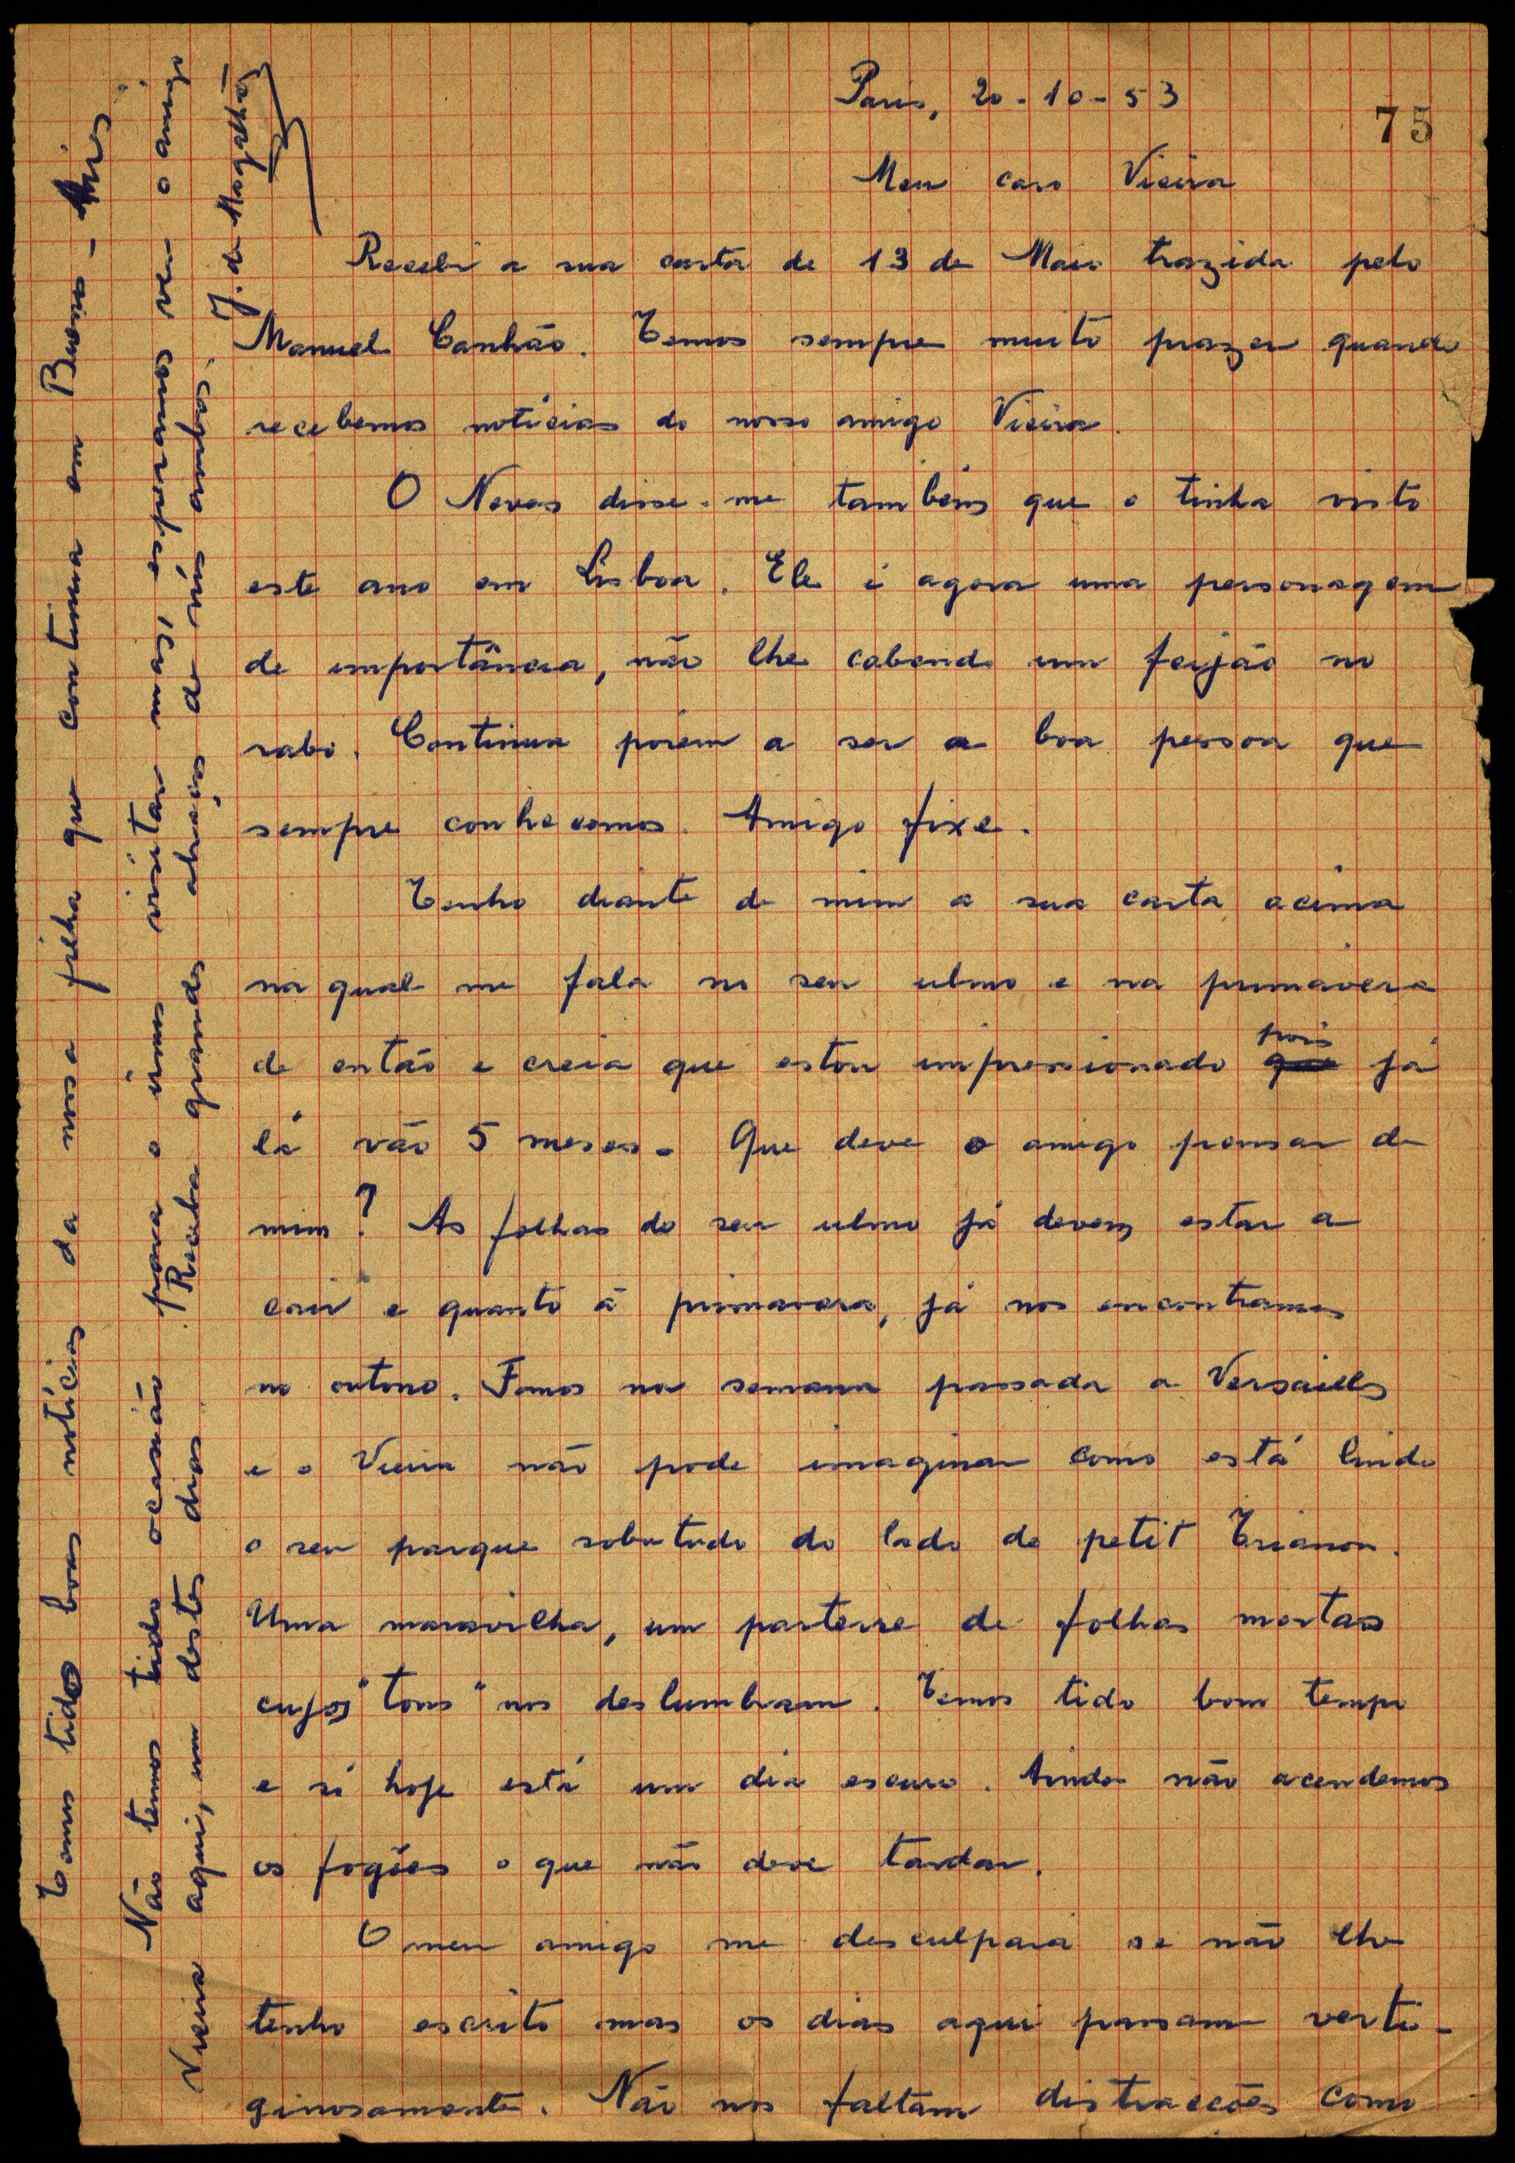 Paris, 20-10-53
75
Meu caro Vieira
Recebi a sua carta de 13 de Maio trazida pelo
Manuel Canhão. Temos sempre muito prazer quando
recebemos notícias do nosso amigo Vieira.
O Neves disse-me também que o tinha visto
este ano em Lisboa. Ele é agora uma personagem
de importância, não lhe cabendo um feijão no
rabo. Continua porém a ser a boa pessoa que
sempre conhecemos. Amigo fixe.
Tenho diante de mim a sua carta acima
na qual me fala no seu ulmo e na primavera
de então e creia que estou impressionado pois já
lá vão 5 meses. Que deve o amigo pensar de
mim? As folhas do seu ulmo já devem estar a
cair e quanto à primavera, já nos encontramos
no outono. Fomos na semana passada a Versailles
e o Vieira não pode imaginar como está lindo
o seu parque sobretudo do lado do petit Trianon.
Uma maravilha, um parterre de folhas mortas
cujos "tons" nos deslumbram. Temos tido bom tempo
e só hoje está um dia escuro. Ainda não acendemos
os fogões o que não deve tardar.
O meu amigo me desculpará se não lhe
tenho escrito mas os dias aqui passam verti-
ginosamente. Não nos faltam distracções como
Temos tido boas notícias da nossa filha que continua em Buenos-Aires
Não temos tido ocasião para o irmos visitar mas, esperamos ver o amigo
Vieira aqui, um destes dias. Receba grandes abraços de nós ambos.
J. de Magalhães